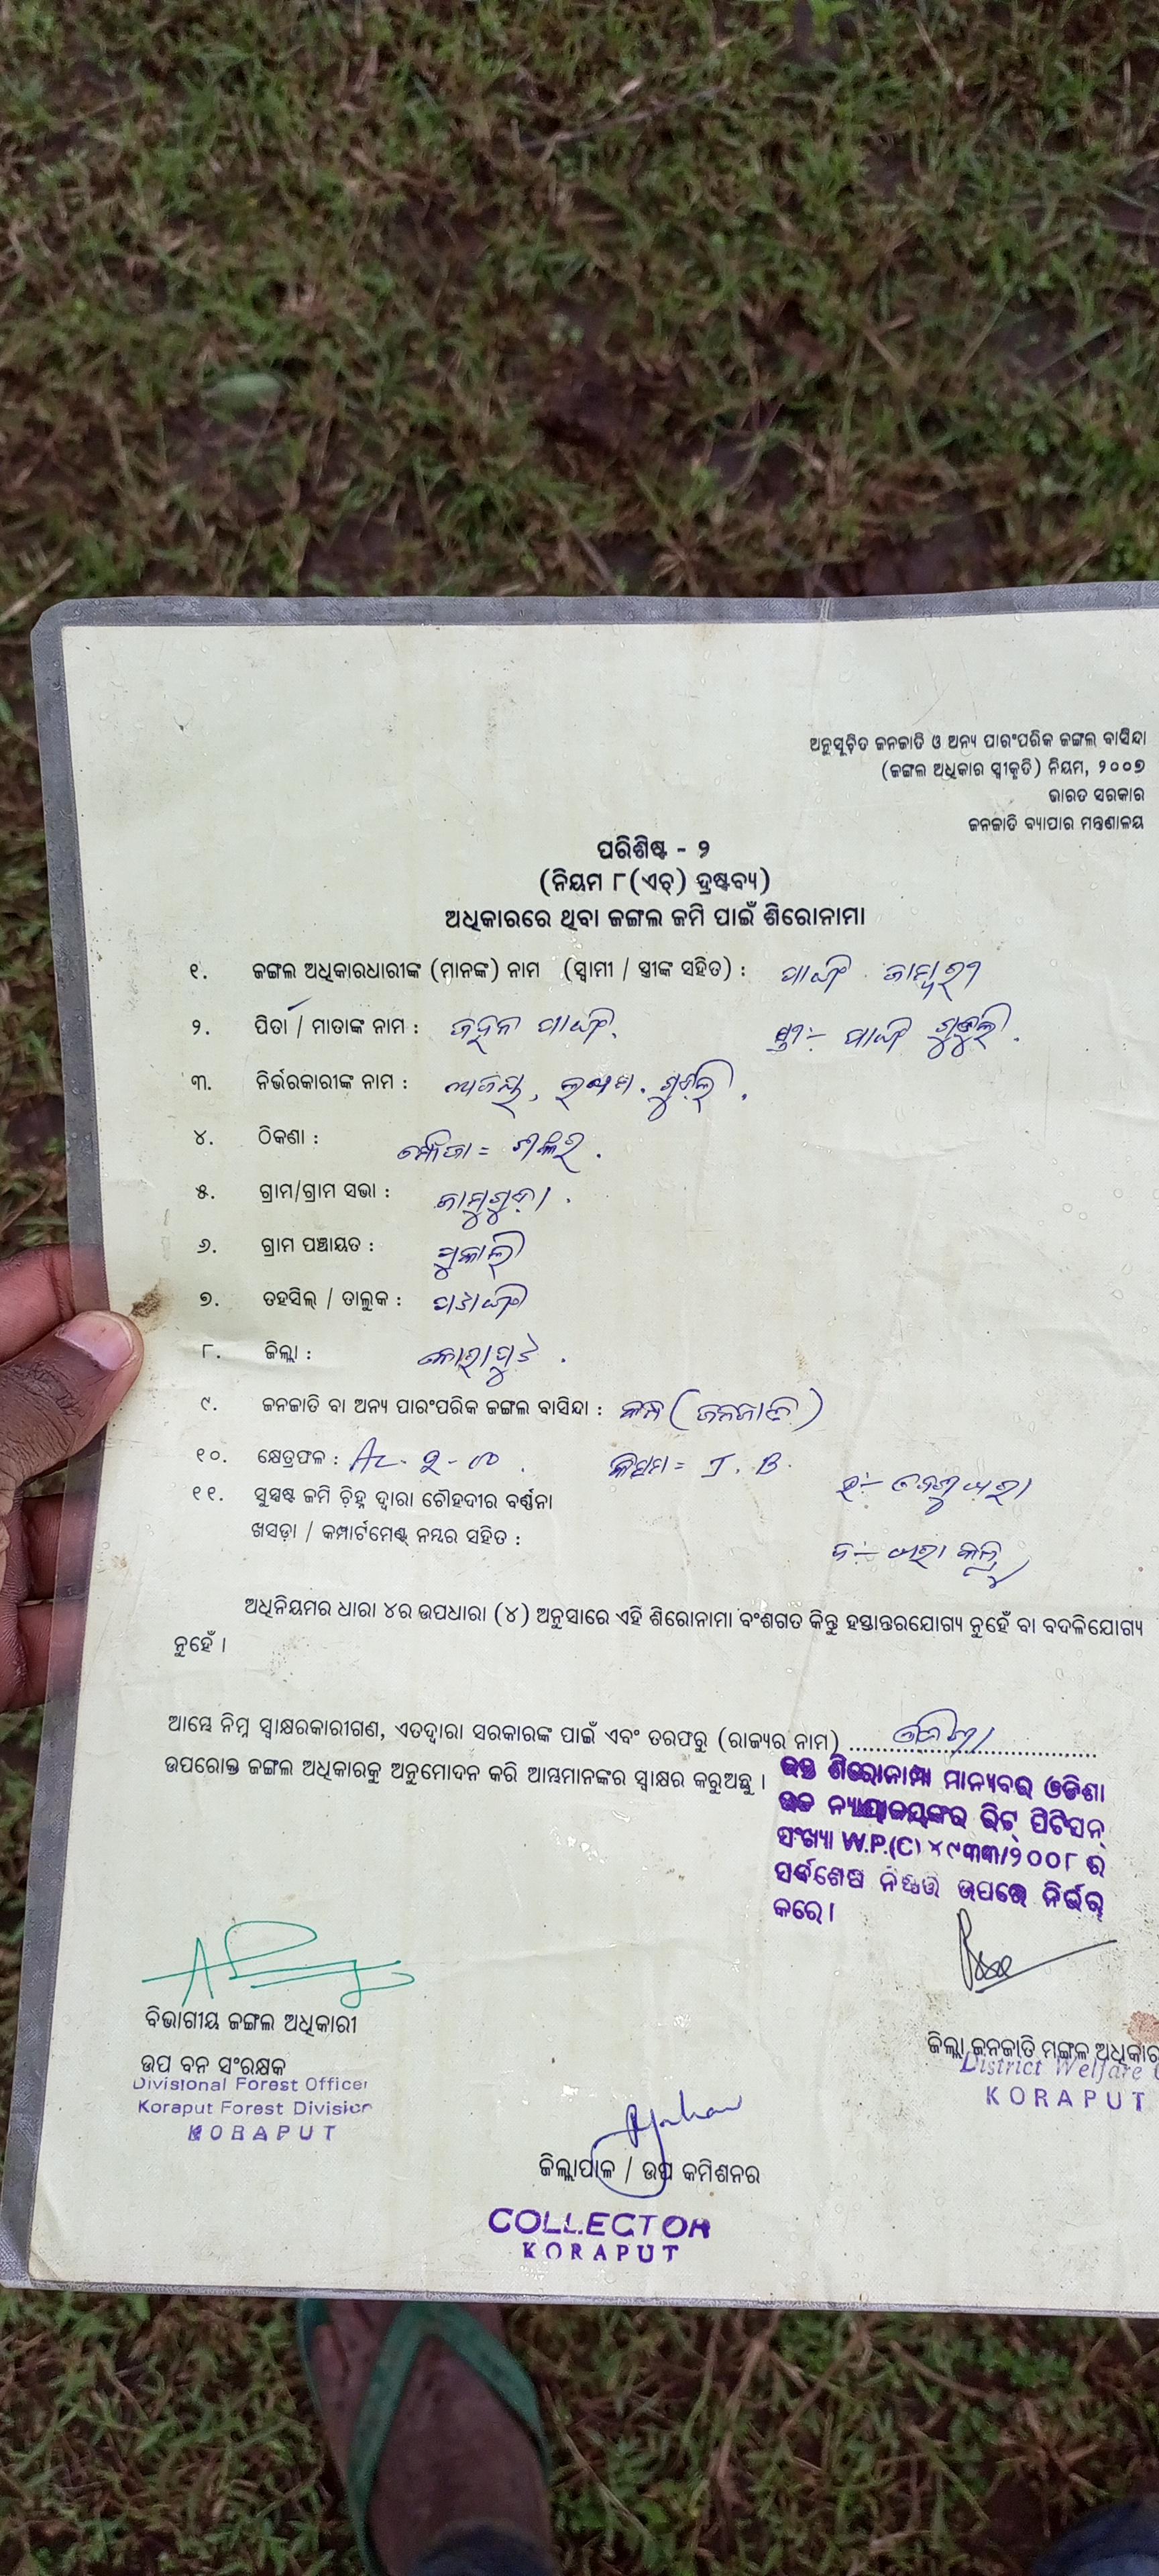 ଅନୁସୂଚିତ ଜନଜାତି ଓ ଅନ୍ୟ ପାରଂପରିକ ଜଙ୍ଗଲ ବାସିନ୍ଦା
(ଜଙ୍ଗଲ ଅଧିକାର ସ୍ୱୀକୃତି) ନିୟମ, ୨୦୦୭
ଭାରତ ସରକାର
ଜନଜାତି ବ୍ୟାପାର ମନ୍ତ୍ରଣାଳୟ
ପରିଶିଷ୍ଟ - ୨
(ନିୟମ ୮(ଏଚ୍) ଦ୍ରଷ୍ଟବ୍ୟ)
ଅଧିକାରରେ ଥିବା ଜଙ୍ଗଲ ଜମି ପାଇଁ ଶିରୋନାମା
୧. ଜଙ୍ଗଲ ଅଧିକାରଧାରୀଙ୍କ (ମାନଙ୍କ) ନାମ (ସ୍ୱାମୀ / ସ୍ତ୍ରୀଙ୍କ ସହିତ) :
୨. ପିତା / ମାତାଙ୍କ ନାମ :
୩. ନିର୍ଭରକାରୀଙ୍କ ନାମ :
୪. ଠିକଣା : ମୌଜା =
୫. ଗ୍ରାମ/ଗ୍ରାମ ସଭା : ଜାମୁଗୁଡ଼ା .
୬. ଗ୍ରାମ ପଞ୍ଚାୟତ : ପୁକାଲି
୭. ତହସିଲ୍ / ତାଲୁକ : ପଟାଙ୍ଗି
୮. ଜିଲ୍ଲା : କୋରାପୁଟ .
୯. ଜନଜାତି ବା ଅନ୍ୟ ପାରଂପରିକ ଜଙ୍ଗଲ ବାସିନ୍ଦା : କନ୍ଧ (ଜନଜାତି)
୧୦. କ୍ଷେତ୍ରଫଳ : କିସମ = J. B.
୧୧. ସୁସ୍ପଷ୍ଟ ଜମି ଚିହ୍ନ ଦ୍ୱାରା ଚୌହଦୀର ବର୍ଣ୍ଣନା
ଖସଡ଼ା / କମ୍ପାର୍ଟମେଣ୍ଟ୍ ନମ୍ବର ସହିତ :
ଅଧିନିୟମର ଧାରା ୪ର ଉପଧାରା (୪) ଅନୁସାରେ ଏହି ଶିରୋନାମା ବଂଶଗତ କିନ୍ତୁ ହସ୍ତାନ୍ତରଯୋଗ୍ୟ ନୁହେଁ ବା ବଦଳିଯୋଗ୍ୟ
ନୁହେଁ ।
ଆମ୍ଭେ ନିମ୍ନ ସ୍ୱାକ୍ଷରକାରୀଗଣ, ଏତଦ୍ୱାରା ସରକାରଙ୍କ ପାଇଁ ଏବଂ ତରଫରୁ (ରାଜ୍ୟର ନାମ) ଓଡିଶା
ଉପରୋକ୍ତ ଜଙ୍ଗଲ ଅଧିକାରକୁ ଅନୁମୋଦନ କରି ଆମ୍ଭମାନଙ୍କର ସ୍ୱାକ୍ଷର କରୁଅଛୁ ।
ଉକ୍ତ ଶିରୋନାମା ମାନ୍ୟବର ଓଡିଶା
ଉଚ୍ଚ ନ୍ୟାୟାଳୟଙ୍କର ରିଟ୍ ପିଟିସନ୍
ସଂଖ୍ୟା W.P.(C) ୪୯୩୩/୨୦୦୮ ର
ସର୍ବଶେଷ ନିଷ୍ପତ୍ତି ଉପରେ ନିର୍ଭର
କରେ ।
ବିଭାଗୀୟ ଜଙ୍ଗଲ ଅଧିକାରୀ
ଉପ ବନ ସଂରକ୍ଷକ
Divisional Forest Officer
Koraput Forest Division
KORAPUT
ଜିଲ୍ଲା ଜନଜାତି ମଙ୍ଗଳ
District Welfare
KORAPUT
ଜିଲ୍ଲାପାଳ / ଉପ କମିଶନର
COLLECTOR
KORAPUT